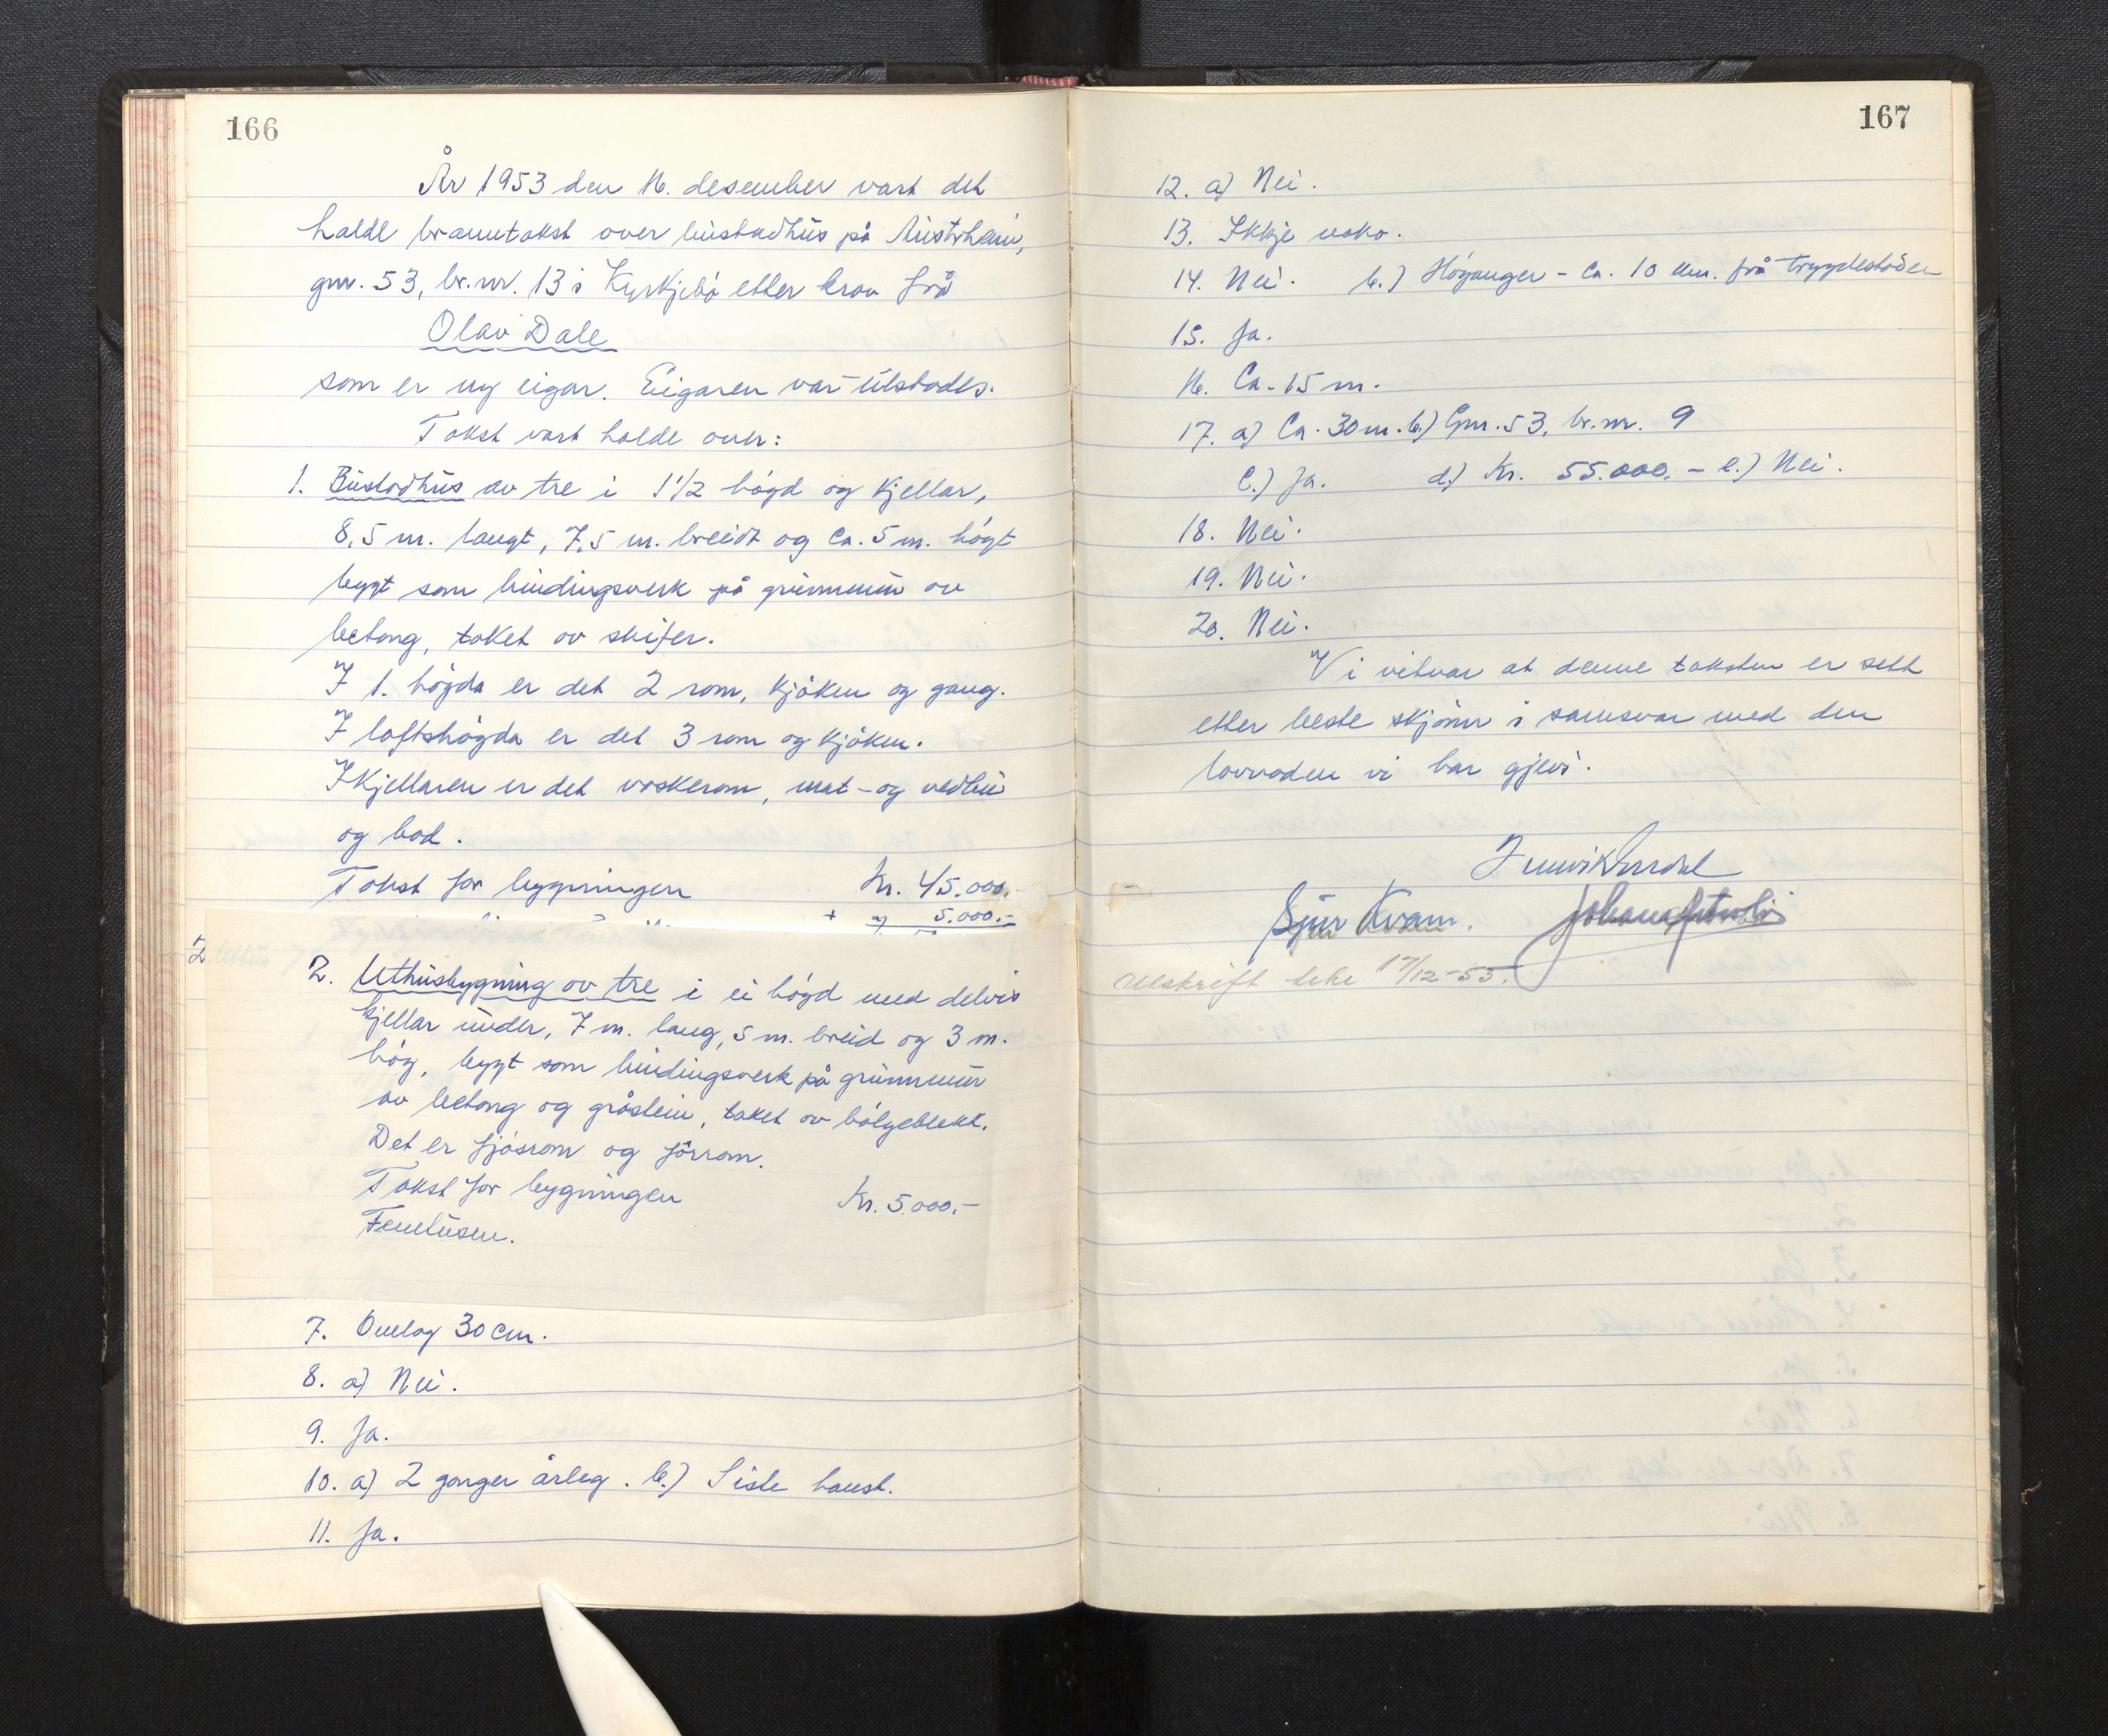 166
År 1953 den 16. desember vart det
halde branntakst over bustadhus på Austrheim,
gnr. 53, br.nr. 13 i Kyrkjebø etter krav frå
Olav Dale
som er ny eigar. Eigaren var tilstades.
Takst vart halde over:
1. Bustadhus av tre i 1 1/2 høgd og kjellar,
8,5 m. langt, 7,5 m. breidt og ca. 5 m. høgt
bygt som bindingsverk på grunnmur av
betong, taket av skifer.
I 1. høgda er det 2 rom, kjøken og gang.
I loftshøgda er det 3 rom og kjøken.
I kjellaren er det vaskerom, mat- og vedbu
og bod.
Takst for bygningen Kr. 45.000.-
+ " 5.000.-
2
2. Uthusbygning av tre i ei høgd med delvis
kjellar under, 7 m. lang, 5 m. breid og 3 m.
høg, bygt som bindingsverk på grunnmur
av betong og gråstein, taket av bølgeblekk.
Det er fjøsrom og fôrrom.
Takst for bygningen Kr. 5.000.-
Femtusen.
7. Omlag 30 cm.
8. a) Nei.
9. Ja.
10. a) 2 ganger årleg. b.) Siste haust.
11. Ja.
167
12. a) Nei.
13. Ikkje noko.
14. Nei. b.) Høyanger - ca. 10 km. frå trygdestaden
15. Ja.
16. Ca. 15 m.
17. a) Ca. 30 m. b.) Gnr. 53, br.nr. 9
c.) Ja. d.) Kr. 55.000.- e.) Nei.
18. Nei.
19. Nei.
20. Nei.
Vi vitnar at denne taksten er sett
etter beste skjønn i samsvar med den
lovnaden vi har gjevi.
Sjur Kvam.
Utskrift teke 17/12-53.